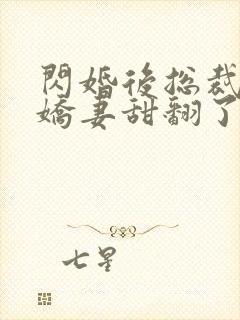 閃婚後總裁
嬌妻甜翻了
七星